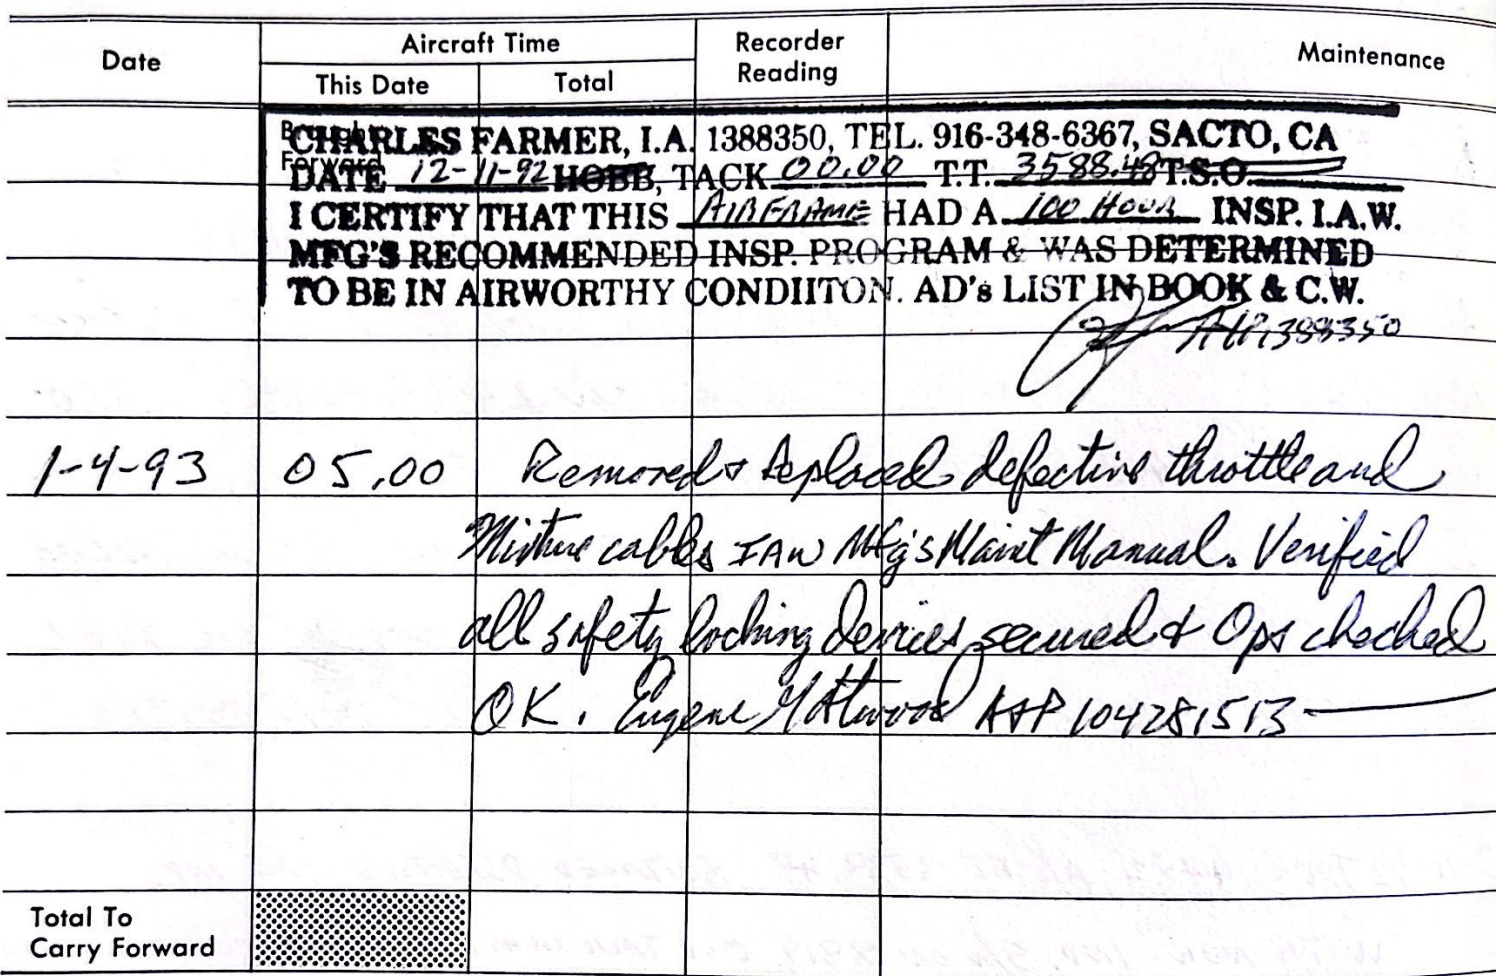 Date
Aircraft Time
Recorder Reading
Maintenance
This Date
Total
Brought Forward
CHARLES FARMER, I.A. 1388350, TEL. 916-348-6367, SACTO, CA
DATE 12-11-92 HOBB, TACK 00.00 T.T. 3588.48 T.S.O.
I CERTIFY THAT THIS AIRFRAME HAD A 100 HOUR INSP. I.A.W.
MFG'S RECOMMENDED INSP. PROGRAM & WAS DETERMINED
TO BE IN AIRWORTHY CONDIITON. AD's LIST IN BOOK & C.W.
1388350
1-4-93 05.00 Removed & Replaced defective throttle and
Mixture cables IAW Mfg's Maint Manual. Verified
all safety locking devices secured & Ops checked
OK. Eugene A&P 104281513
Total To
Carry Forward